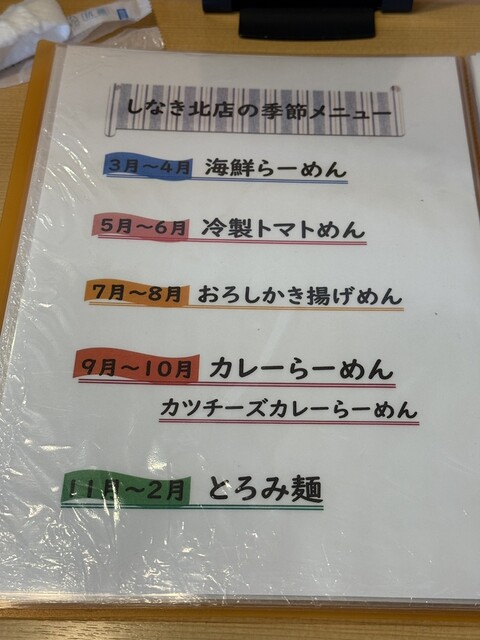 しなき北店の季節メニュー
3月～4月 海鮮らーめん
5月～6月 冷製トマトめん
7月～8月 おろしかき揚げめん
9月～10月 カレーらーめん
カツチーズカレーらーめん
11月～2月 とろみ麺